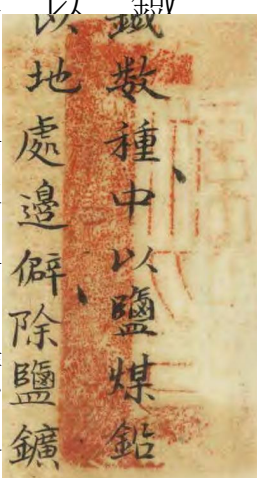 鐵数種、中以鹽煤鉛
以地處邊僻、除鹽鑛